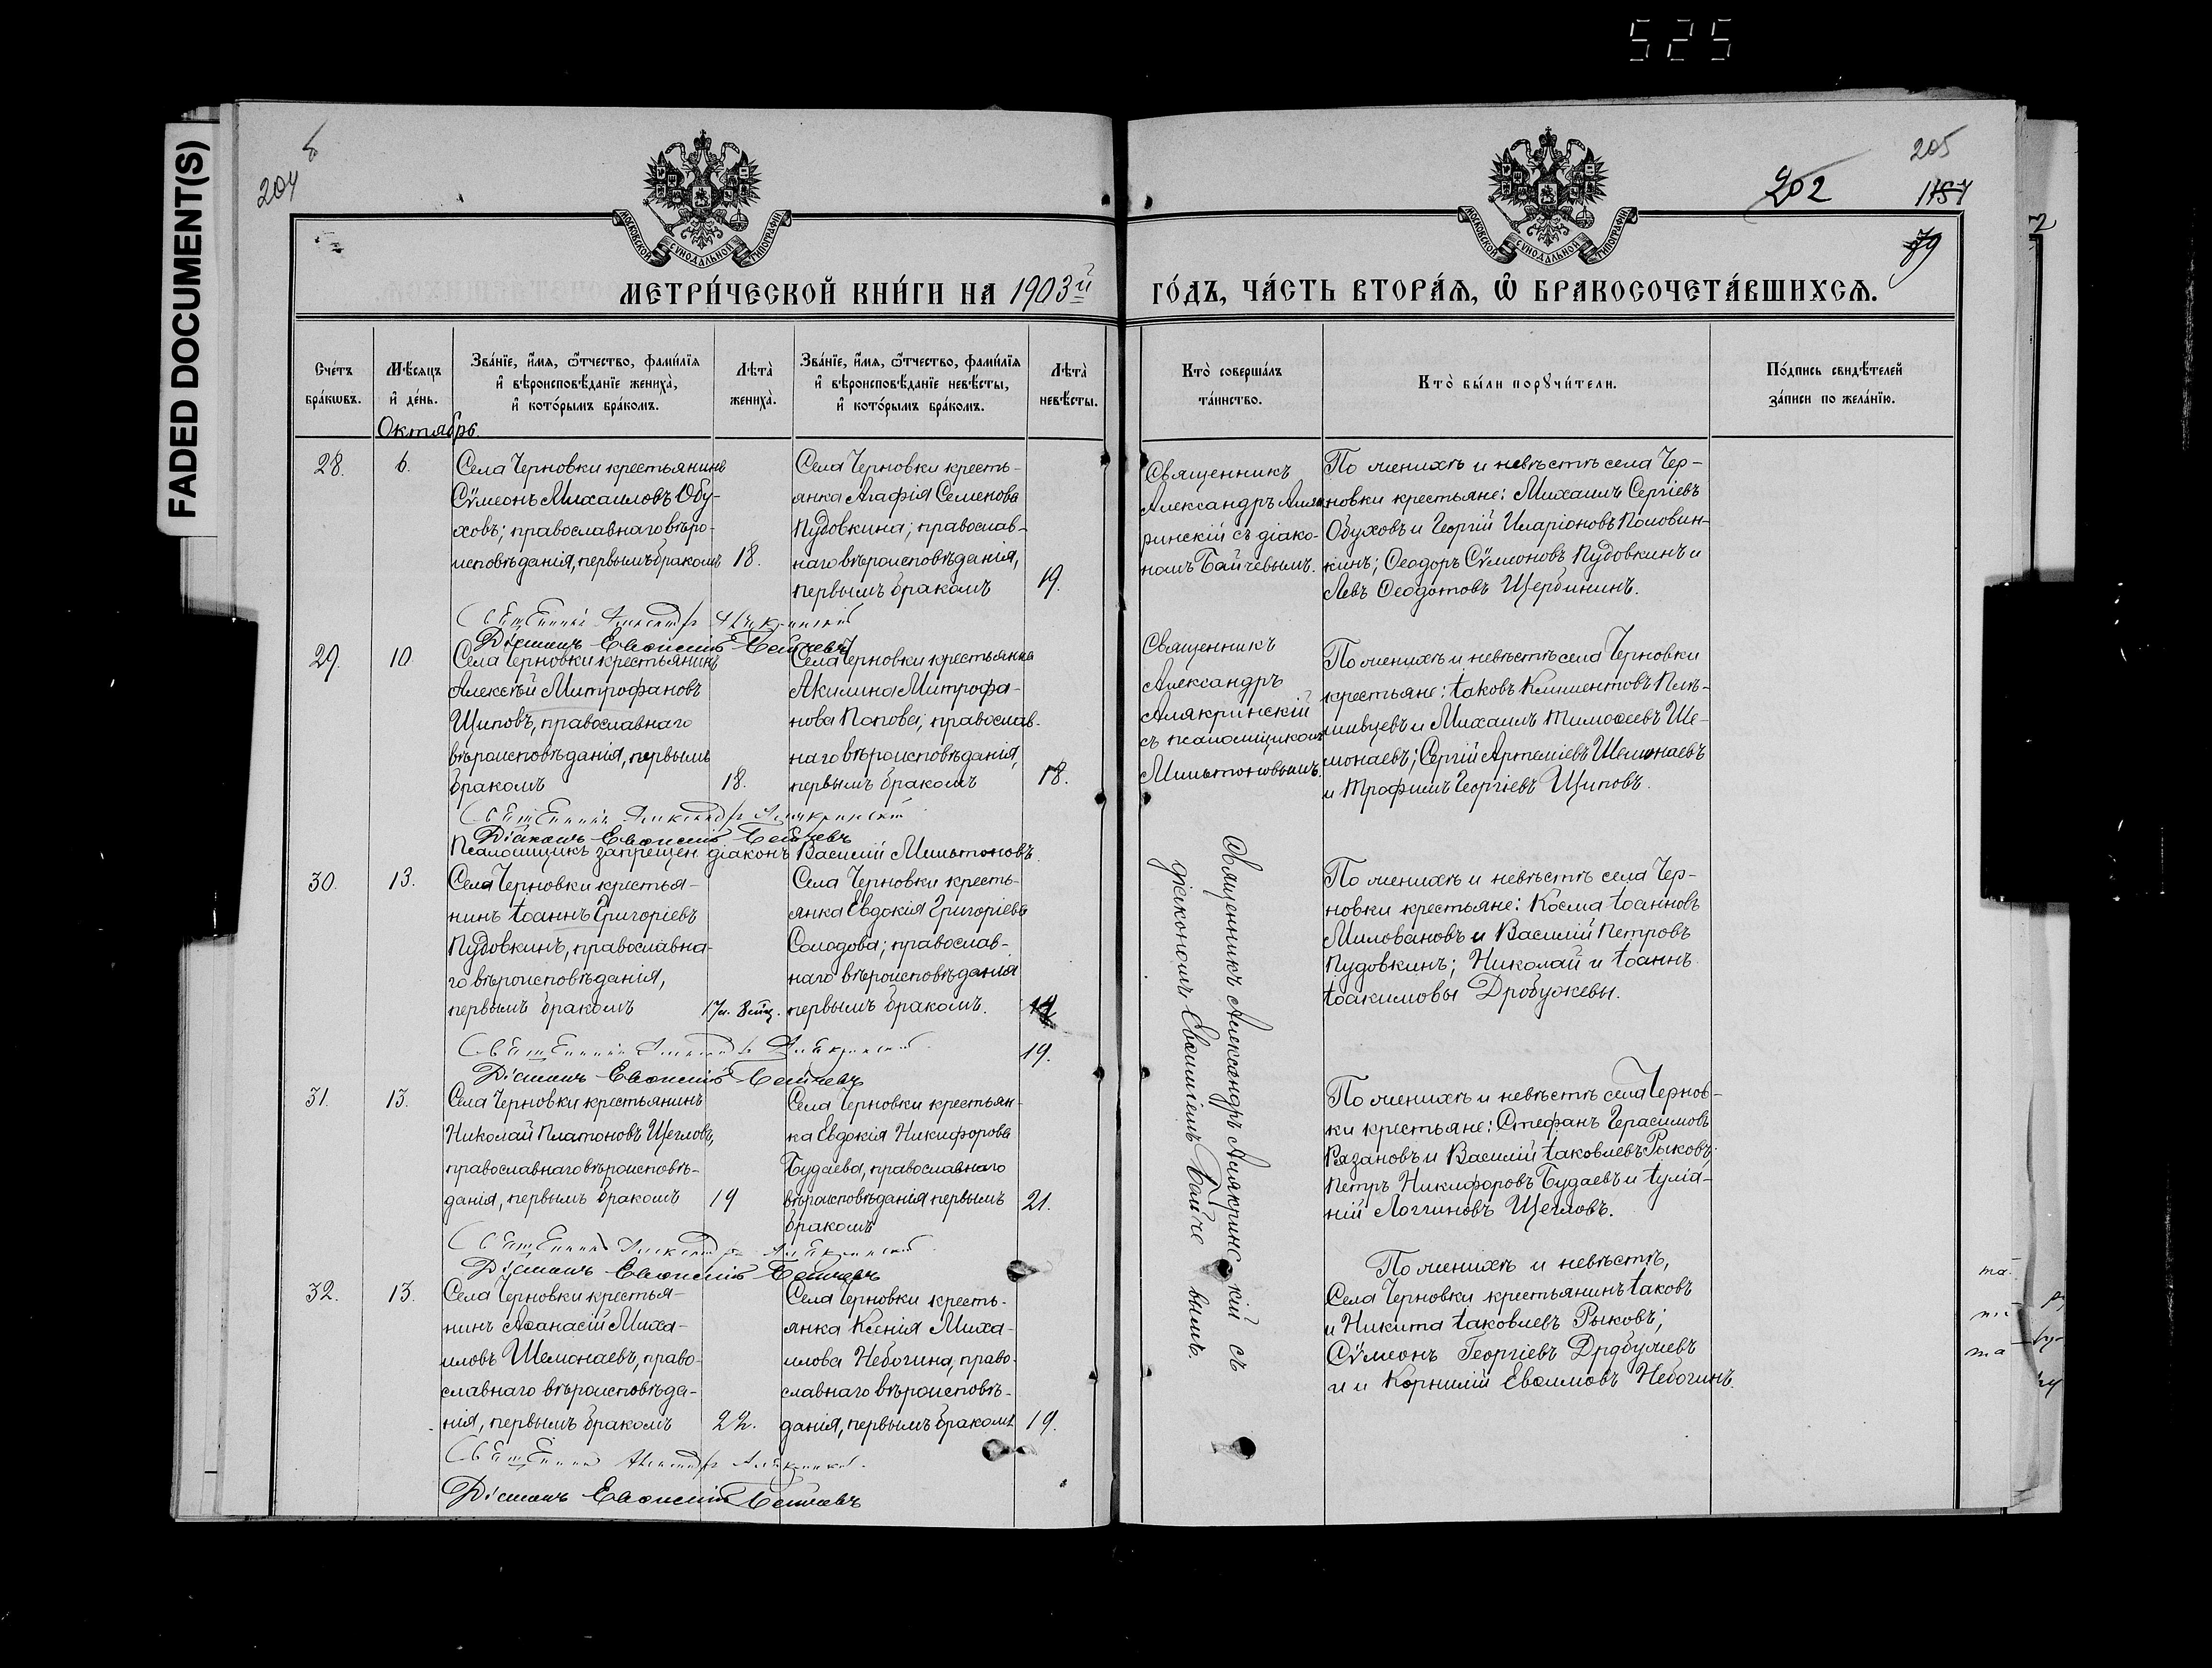 525
FADED DOCUMENT(S)
204
205
202
79
2
МОСКОВСКОЙ СѴНОДАЛЬНОЙ ТИПОГРАФІИ
МОСКОВСКОЙ СѴНОДАЛЬНОЙ ТИПОГРАФІИ
МЕТРИ́ЧЕСКОЙ КНИ́ГИ НА 1903й
ГО́ДЪ, ЧА́СТЬ ВТОРА́Ѧ, Ѡ҆ БРАКОСОЧЕТА́ВШИХСѦ.
Сче́тъ бра́кѡвъ.
Мѣ́сяцъ и҆ де́нь.
Зва́нїе, и҆́мя, ѻ҆́тчество, фами́лїя и҆ вѣроисповѣ́данїе жениха̀, и҆ кото́рымъ бра́комъ.
Лѣта̀ жениха̀.
Зва́нїе, и҆́мя, ѻ҆́тчество, фами́лїя и҆ вѣроисповѣ́данїе невѣ́сты, и҆ кото́рымъ бра́комъ.
Лѣта̀ невѣ́сты.
Кто̀ соверша́лъ та́инство.
Кто̀ бы́ли порꙋчи́тели.
По́дпись свидѣ́телей за́писи по жела́нїю.
Октябрь.
28.
6.
Села Черновки крестьянинъ
Сѵмеонъ Михаиловъ Обу-
ховъ; православнаго вѣро-
исповѣданія, первымъ бракомъ
18.
Села Черновки кресть-
янка Агафія Семенова
Пудовкина; православ-
наго вѣроисповѣданія,
первымъ бракомъ
19.
Священникъ
Александръ Аляк-
ринскій съ діако-
номъ Байчевымъ.
По женихѣ и невѣстѣ села Чер-
новки крестьяне: Михаилъ Сергіевъ
Обуховъ и Георгій Иларіоновъ Половин-
кинъ; Ѳеодоръ Сѵмеоновъ Пудовкинъ и
Левъ Ѳеодотовъ Щербининъ.
Священникъ Александръ Алякринскій
Діаконъ Евѳимій Байчевъ
29.
10
Села Черновки крестьянинъ
Алексѣй Митрофановъ
Щиповъ, православнаго
вѣроисповѣданія, первымъ
бракомъ
18.
Села Черновки крестьянка
Акилина Митрофа-
нова Попова; православ-
наго вѣроисповѣданія,
первымъ бракомъ
18.
Священникъ
Александръ
Алякринскій
съ псаломщикомъ
Мильтоновымъ.
По женихѣ и невѣстѣ села Черновки
крестьяне: Іаковъ Климентовъ Плѣ-
шивцевъ и Михаилъ Тимоѳеевъ Ше-
монаевъ; Сергій Артеміевъ Шемонаевъ
и Трофимъ Георгіевъ Щиповъ.
Священникъ Александръ Алякринскій
Діаконъ Евѳимій Байчевъ
Псаломщикъ запрещен діаконъ Василій Мильтоновъ.
30.
13.
Села Черновки крестья-
нинъ Іоаннъ Григоріевъ
Пудовкинъ, православна-
го вѣроисповѣданія,
первымъ бракомъ
17л. 8 мѣс.
Села Черновки кресть-
янка Евдокія Григоріева
Солодова; православ-
наго вѣроисповѣданія
первымъ бракомъ.
19.
Священникъ Александръ Алякринскій съ
діакономъ Евѳиміемъ Байчевымъ.
По женихѣ и невѣстѣ села Чер-
новки крестьяне: Косма Іоанновъ
Миловановъ и Василій Петровъ
Пудовкинъ; Николай и Іоаннъ
Іоакимовы Дробужевы.
Священникъ Александръ Алякринскій
Діаконъ Евѳимій Байчевъ
31.
13.
Села Черновки крестьянинъ
Николай Платоновъ Щегловъ,
православнаго вѣроисповѣ-
данія, первымъ бракомъ
19
Села Черновки крестьян-
ка Евдокія Никифорова
Будаева, православнаго
вѣроисповѣданія первымъ
бракомъ
21.
По женихѣ и невѣстѣ села Чернов-
ки крестьяне: Стефанъ Герасимовъ
Рязановъ и Василій Іаковлевъ Рыковъ;
Петръ Никифоровъ Будаевъ и Іуліа-
ній Логгиновъ Щегловъ.
Священникъ Александръ Алякринскій
Діаконъ Евѳимій Байчевъ
32.
13.
Села Черновки крестья-
нинъ Аѳанасій Миха-
иловъ Шемонаевъ, право-
славнаго вѣроисповѣда-
нія, первымъ бракомъ
22.
Села Черновки кресть-
янка Ксенія Миха-
илова Небогина, право-
славнаго вѣроисповѣ-
данія, первымъ бракомъ
19.
По женихѣ и невѣстѣ,
Села Черновки крестьянинъ Іаковъ
и Никита Іаковлевъ Рыковъ;
Сѵмеонъ Георгіевъ Дробужевъ
и и Корнилій Евѳимовъ Небогинъ.
Священникъ Александръ Алякринскій
Діаконъ Евѳимій Байчевъ